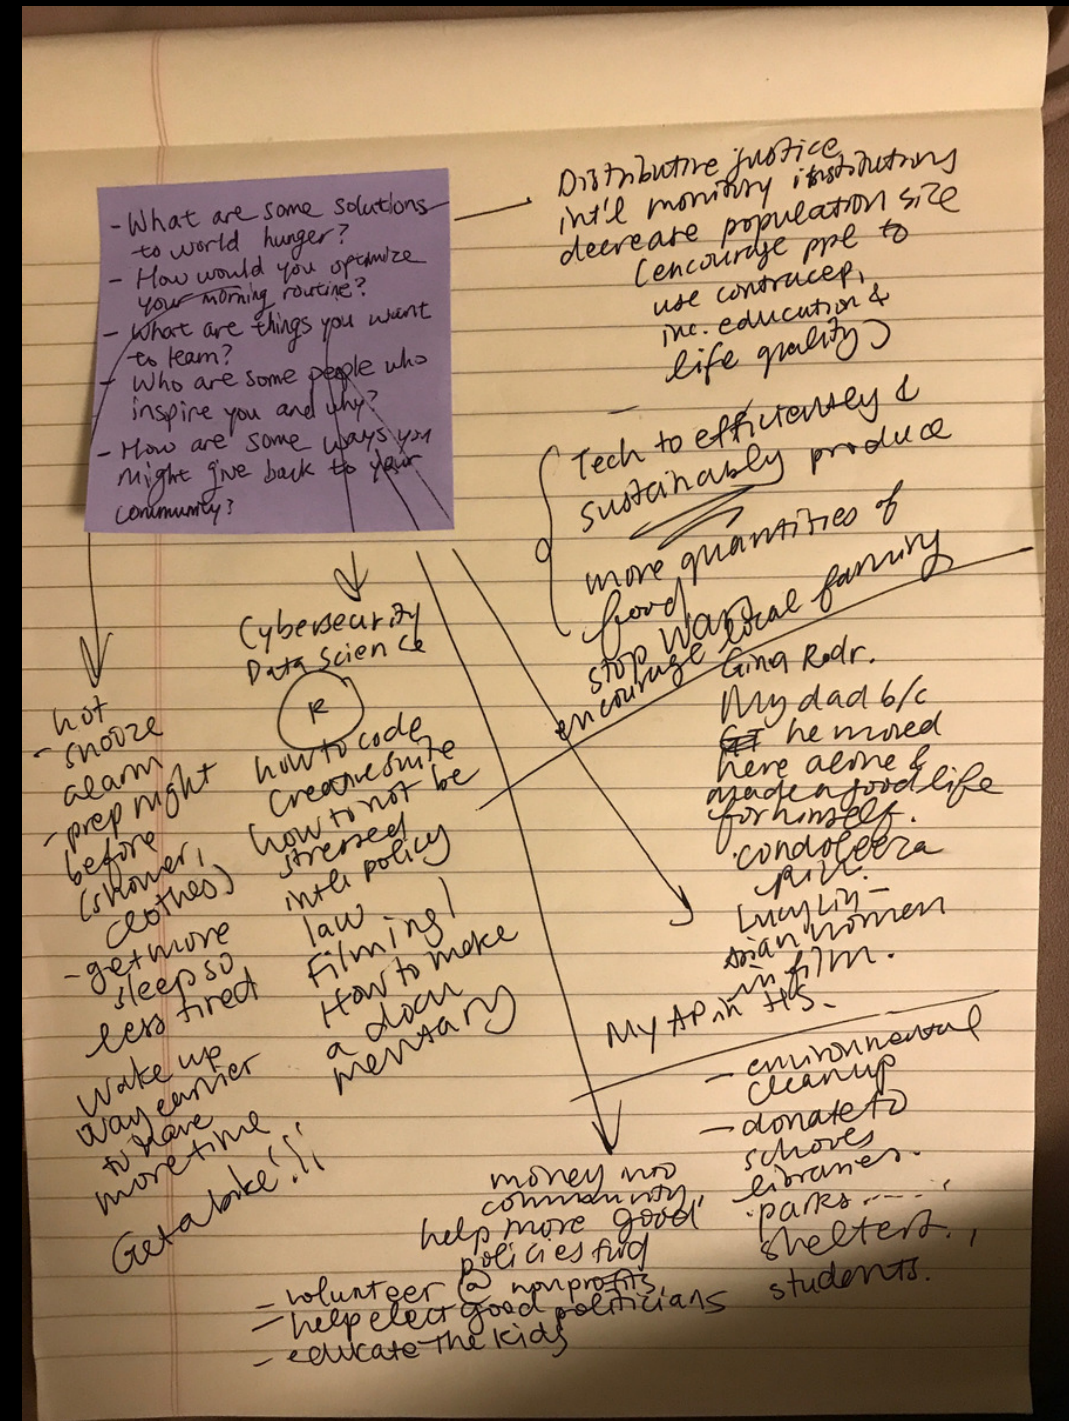 - What are some solutions
to world hunger?
- How would you optimize
your morning routine?
- What are things you want
to learn?
- Who are some people who
inspire you and why?
- How are some ways you
might give back to your
community?
Distributive justice
int'l monitory institutions
decrease population size
(encourage ppl to
use contracep,
inc. education &
life quality)
Tech to efficiently &
sustainably produce
more quantities of
food
stop wars
encourage local farming
not
- snooze
alarm
- prep night
before
(shower,
clothes)
- get more
sleep so
less tired
Wake up
way earlier
to have
more time
Get a bike!!!
Cybersecurity
Data Science
R
how to code
Creative suite
how to not be
stressed
int'l policy
law
Filming /
How to make
a docu
mentary
Gina Rodr.
My dad b/c
he moved
here alone &
made a good life
for himself.
condoleeza
Lucy Liu -
Asian women
in film.
My AP in HS.
- environmental
cleanup
- donate to
schools
libraries.
parks
shelters.,
students.
money
community,
help more good
policies
- volunteer @ nonprofits,
- help elect good politicians
- educate the kids